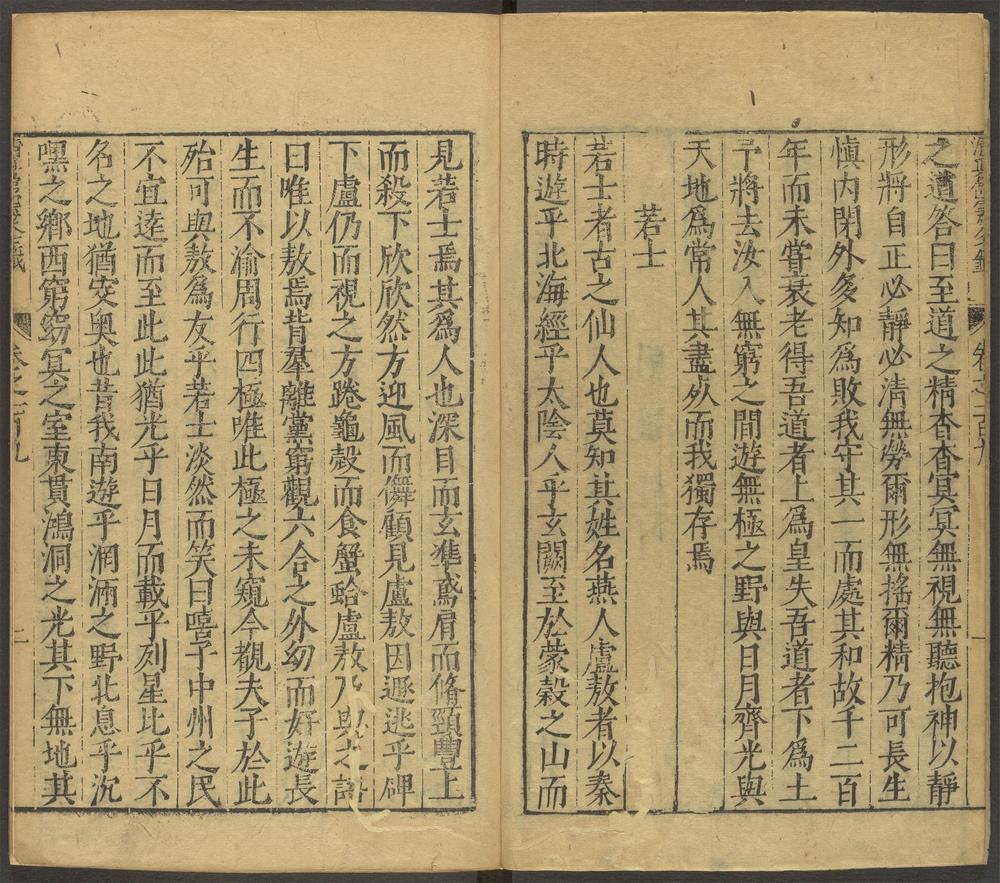 之道答曰至道之精杳杳冥冥無視無聽抱神以靜
形將自正必靜必清無勞爾形無搖爾精乃可長生
慎內閉外多知為敗我守其一而處其和故千二百
年而未嘗衰老得吾道者上為皇失吾道者下為土
予將去汝入無窮之間遊無極之野與日月齊光與
天地為常人其盡死而我獨存焉
若士
若士者古之仙人也莫知其姓名燕人盧敖者以秦
時遊乎北海經乎太陰入乎玄闕至於蒙穀之山而
見若士焉其為人也深目而玄準鳶肩而脩頸豐上
而殺下欣欣然方迎風而儛顧見盧敖因遯逃乎碑
下盧仍而視之方踡龜殼而食蟹蛤盧敖乃與之語
曰唯以敖焉背羣離黨窮觀六合之外幼而好遊長
生而不渝周行四極唯此極之未窺今覩夫子於此
殆可與敖為友乎若士淡然而笑曰嘻子中州之民
不宜逺而至此此猶光乎日月而載乎列星比乎不
名之地猶突奧也昔我南遊乎洞㵎之野北息乎沉
嘿之鄉西窮窈冥之室東貫鴻洞之光其下無地其
卷之一百九
二